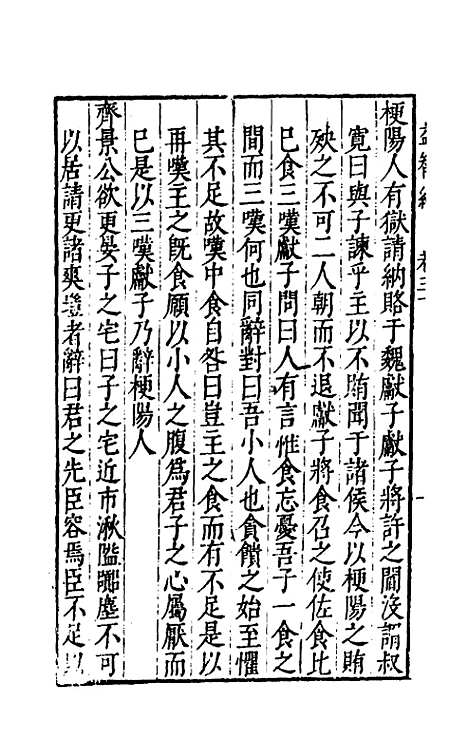 梗陽人有獄請納賂于魏獻子獻子將許之閻沒謂叔
寬曰與子諫乎主以不賄聞于諸侯今以梗陽之賄
殃之不可二人朝而不退獻子將食召之使佐食比
已食三嘆獻子問曰人有言惟食忘憂吾子一食之
間而三嘆何也同辭對曰吾小人也貪饋之始至懼
其不足故嘆中食自咎曰豈主之食而有不足是以
再嘆主之既食願以小人之腹為君子之心屬厭而
已是以三嘆獻子乃辭梗陽人
齊景公欲更晏子之宅曰子之宅近市湫隘嚻塵不可
以居請更諸爽塏者辭曰君之先臣容焉臣不足以